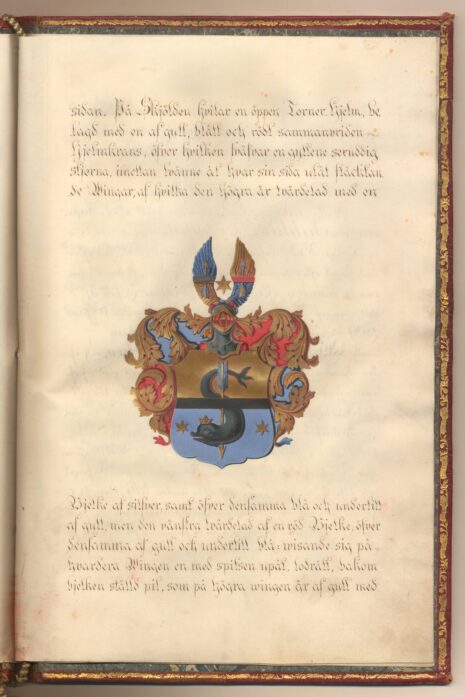 sidan. På Skjölden hvilar en öppen Torner Hjelm, be
lagd med en af gull, blått och rödt sammanvriden
Hjelmkrans, öfver hvilken sväfvar en gyllene sexuddig
stjerna, imellan tvänne åt hvar sin sida utåt fläcktan
de Wingar, af hvilka den högra är tvärdelad med en
Bjelke af silfver, samt öfver densamma blå och undertill
af gull, men den vänstra tvärdelad af en röd Bjelke, öfver
densamma af gull och undertill blå: wisande sig på
hvardera Wingen en med spitsen upåt, lodrätt, bakom
bjelken ställd pil, som på högra wingen är af gull med